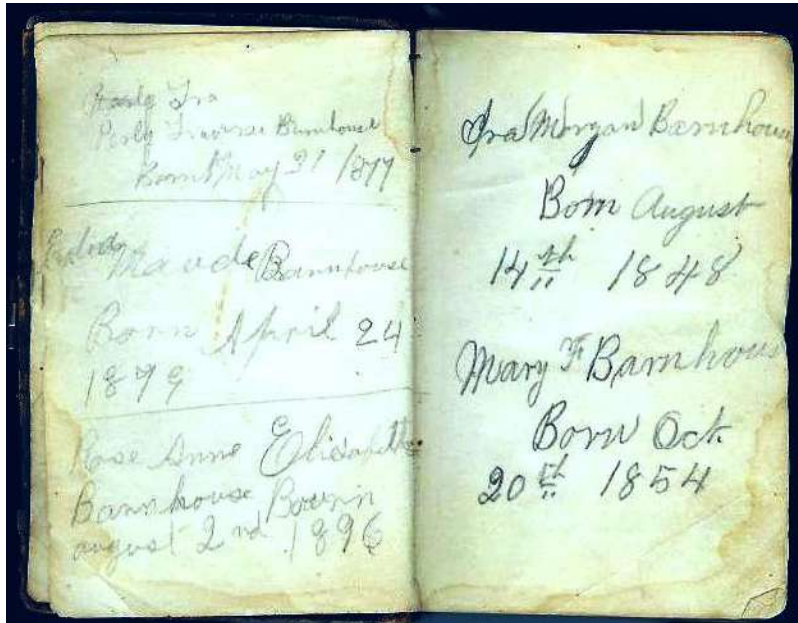 Perly Ira
Perly Traverse Barnhouse
Born May 31 1877
Maude Barnhouse
Born April 24
1879
Rose Anne Elisabeth
Barnhouse Bourin
august 2nd 1896
Ira Morgan Barnhouse
Born August
14th 1848
Mary F Barnhous
Born Oct
20th 1854